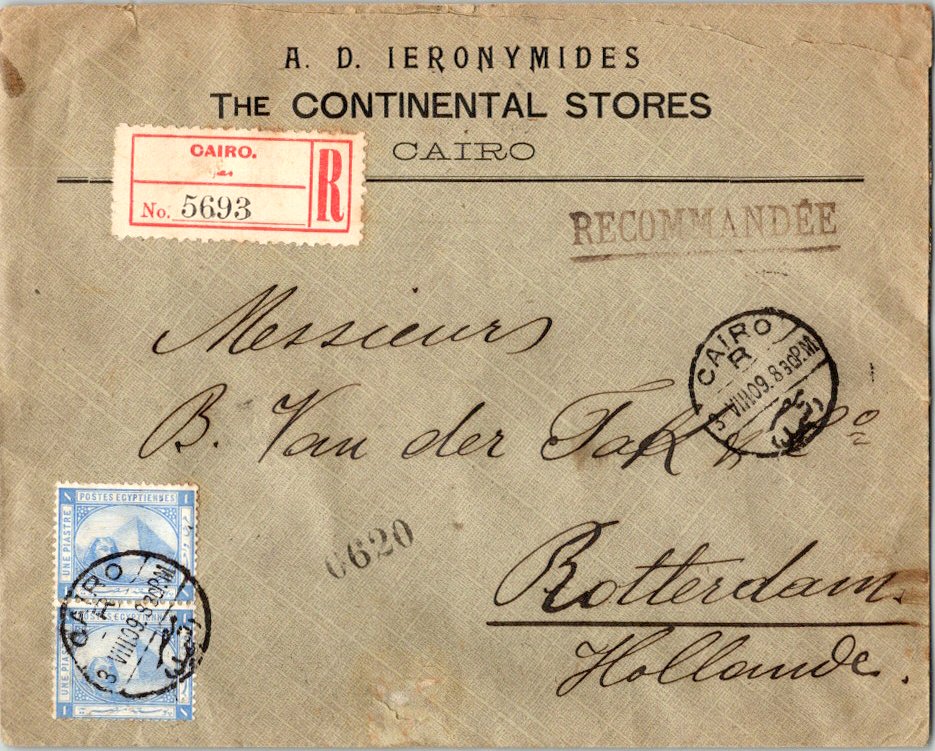 A. D. IERONYMIDES
THE CONTINENTAL STORES
CAIRO
CAIRO.
No. 5693
R
RECOMMANDÉE
Messieurs
CAIRO
R
3 VIII 09. 8 30P.M.
B. Van der Tak & Co
POSTES EGYPTIENNES
UNE PIASTRE
6620
Rotterdam.
Hollande.
CAIRO
R
3 VIII 09. 8 30P.M.
POSTES EGYPTIENNES
UNE PIASTRE